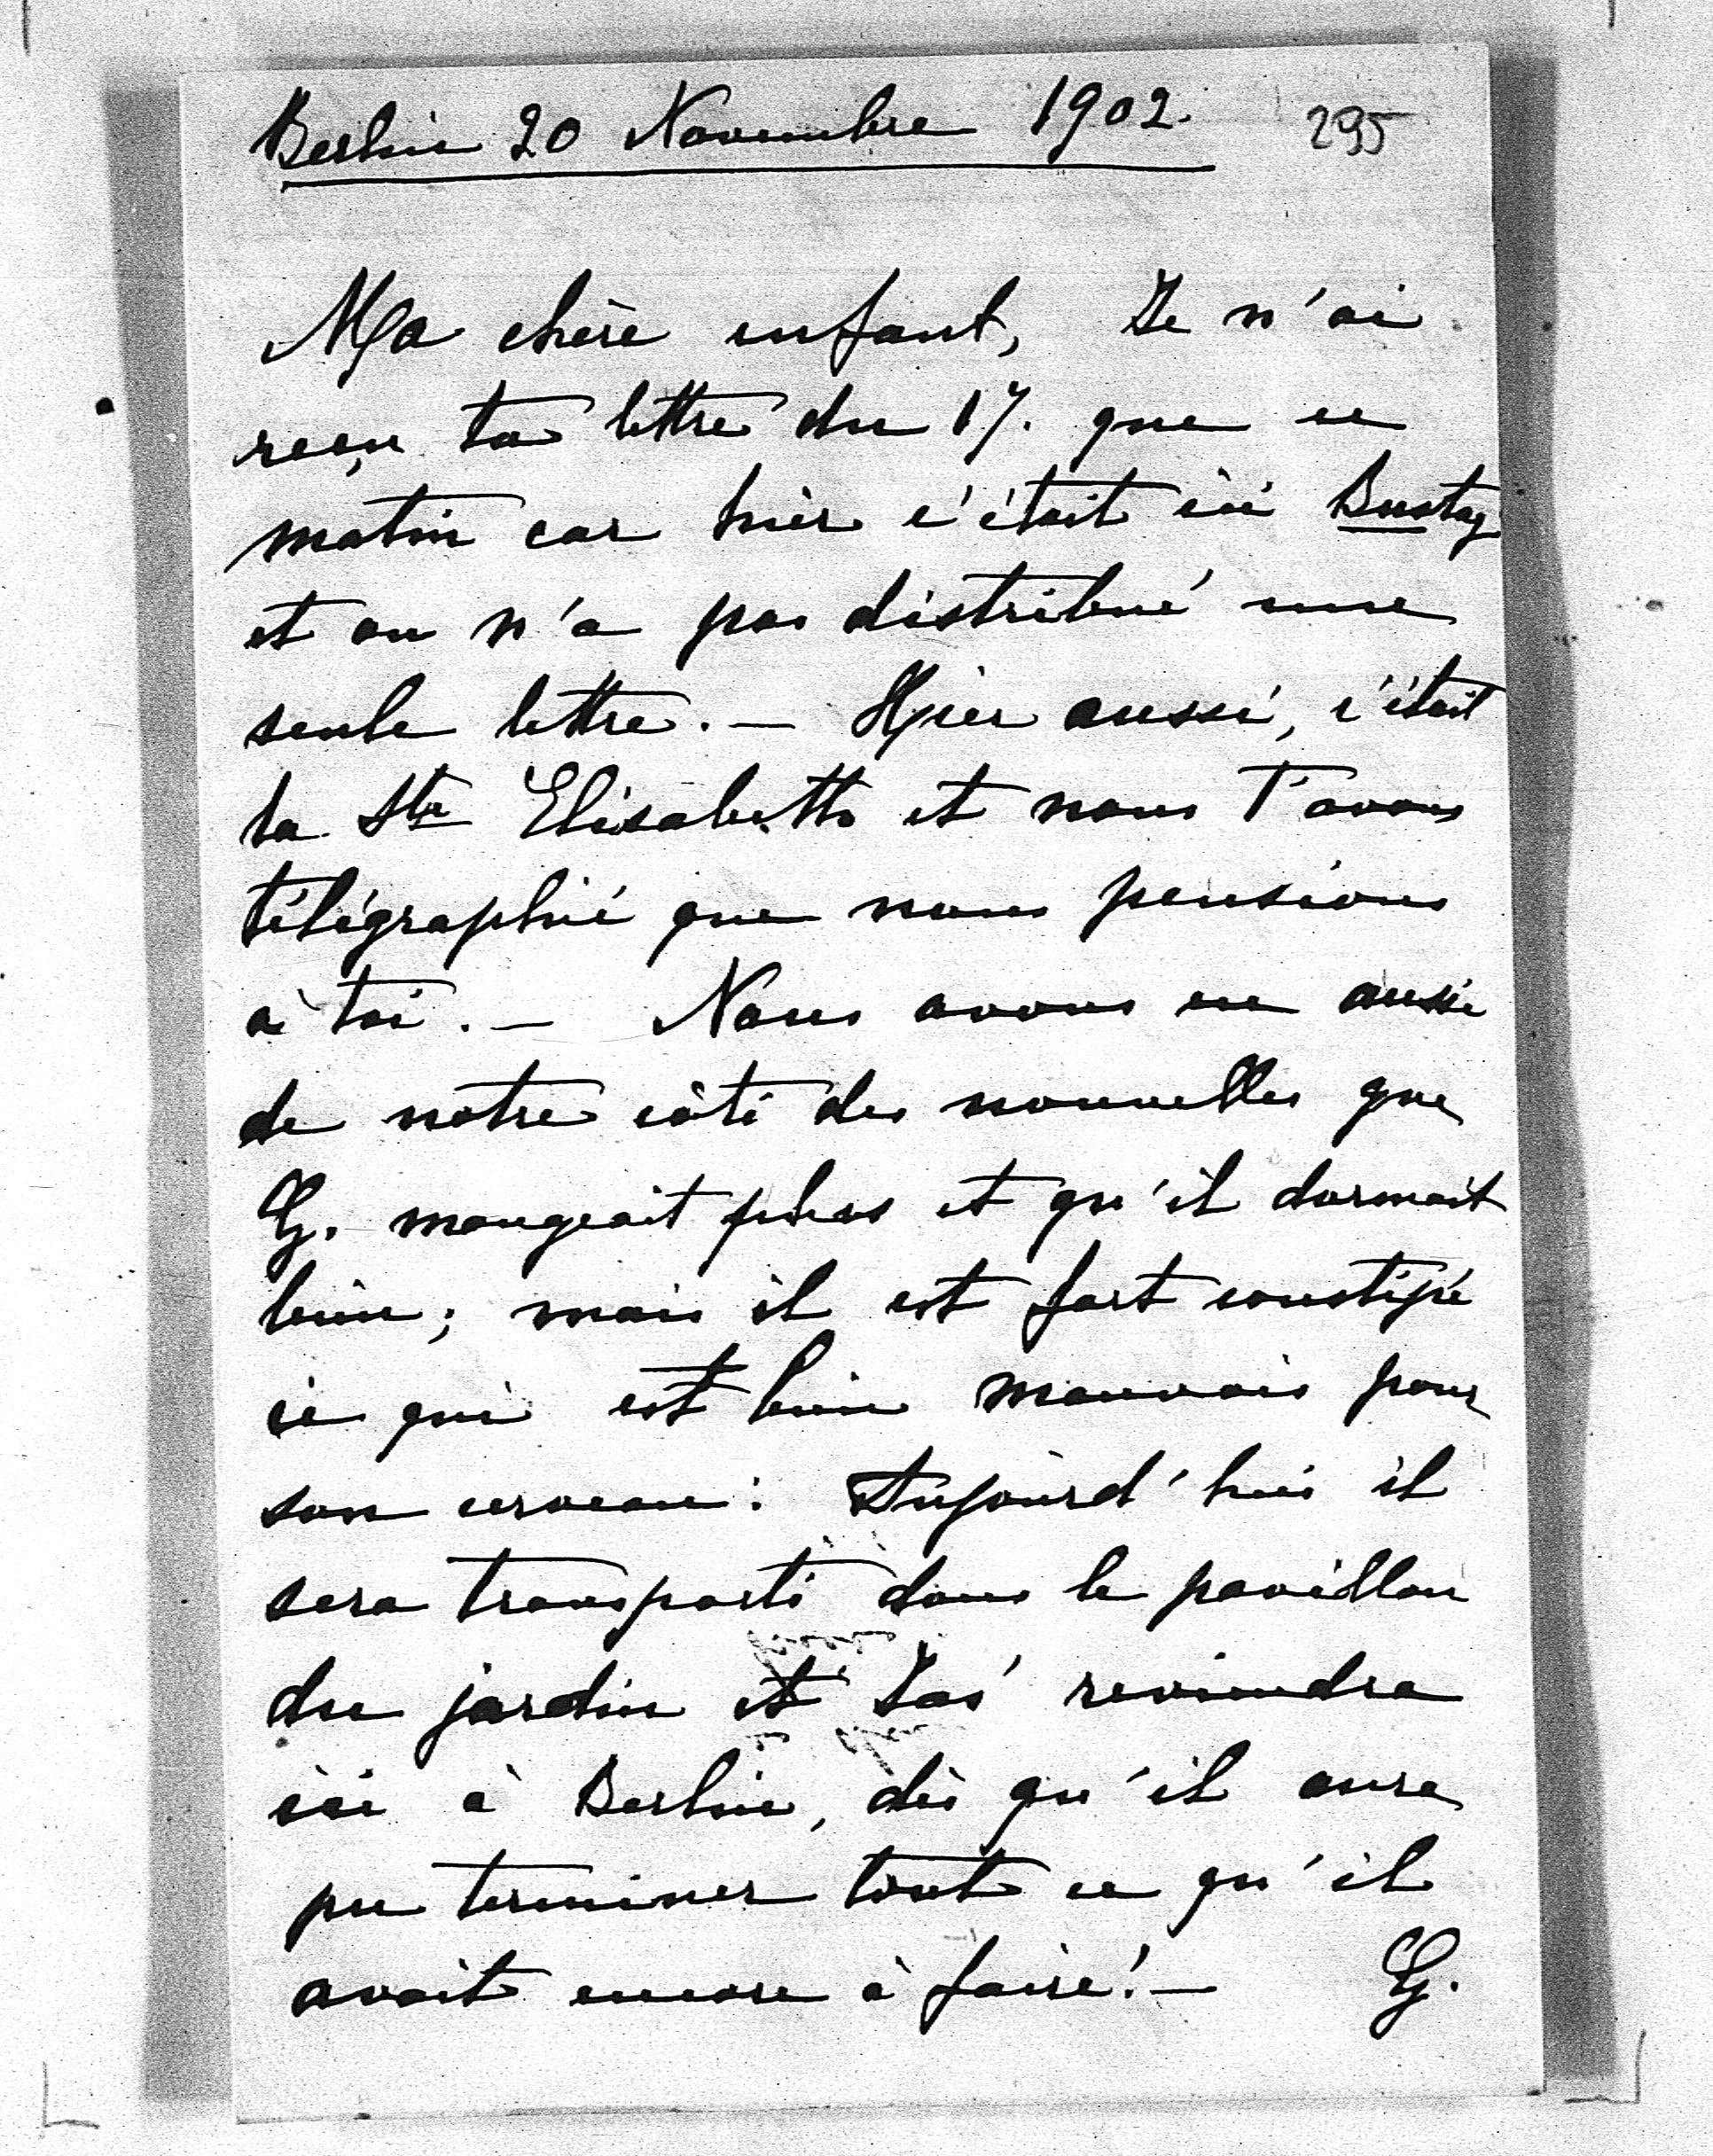 Berlin 20 Novembre 1902. 295
Ma chère enfant, Je n'ai
reçu ta lettre du 17. que ce
matin car hier c'était ici Bustag
et on n'a pas distribué une
seule lettre. — Hier aussi, c'était
la Ste Elisabeth et nous T'avons
télégraphié que nous pensions
à toi. — Nous avons eu aussi
de notre côté des nouvelles que
G. mangeait plus et qu'il dormait
bien; mais il est fort constipé
ce qui est bien mauvais pour
son cerveau: Aujourd'hui il
sera transporté dans le pavillon
du jardin et reviendra
ici à Berlin, dès qu'il aura
pu terminer tout ce qu'il
avait encore à faire! — G.